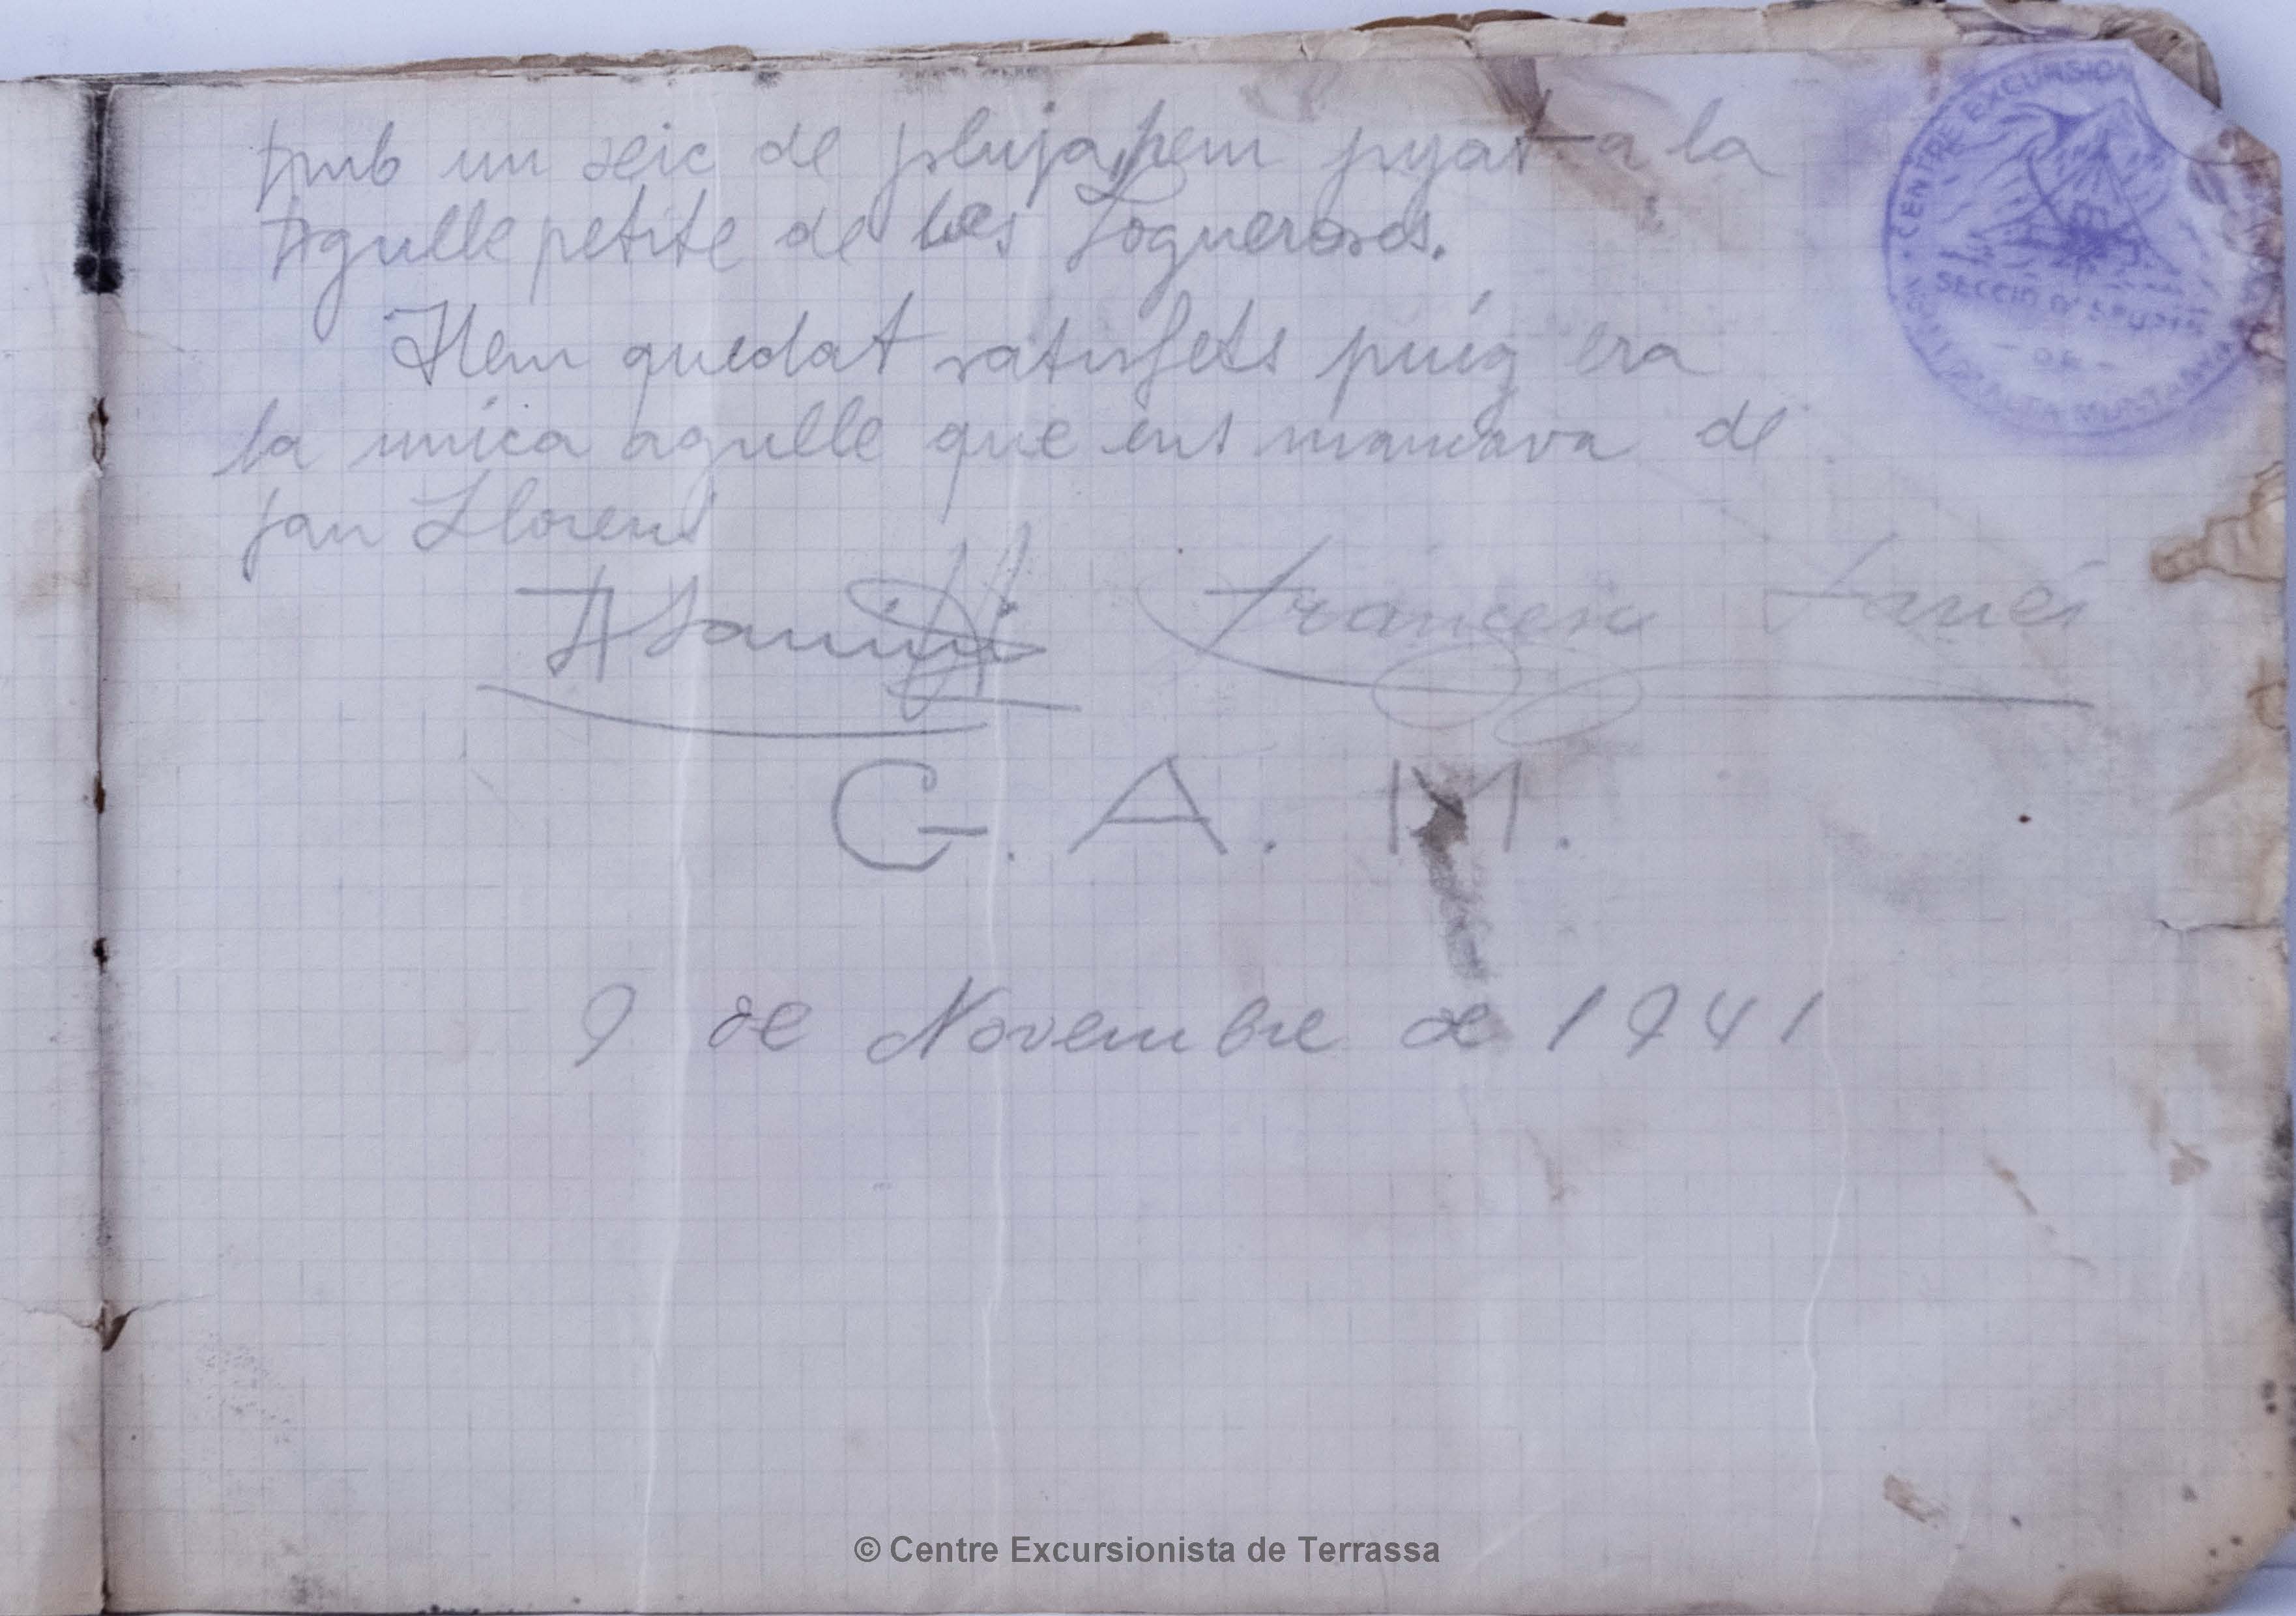 Amb un xeic de pluja, hem pujat a la
Agulle petite de les Fogueroses.
Hem quedat satisfets puig era
la unica agulle que ens mancava de
San Llorens
Francesc
G. A. M.
9 de Novembre de 1941
CENTRE EXCURSION
SECCIÓ D'ESTUDIS
- DE -
ALTA MUNTANYA
© Centre Excursionista de Terrassa